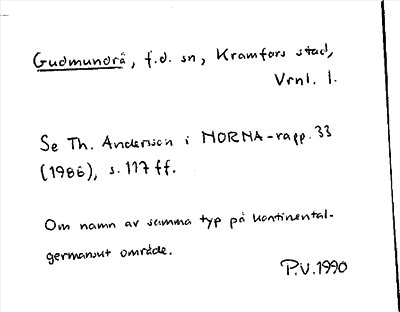 Gudmundrå, f.d. sn, Kramfors stad,
Vrnl. l.
Se Th. Andersson i NORNA-rapp. 33
(1986), s. 117 ff.
Om namn av samma typ på kontinental-
germanskt område.
P.V. 1990